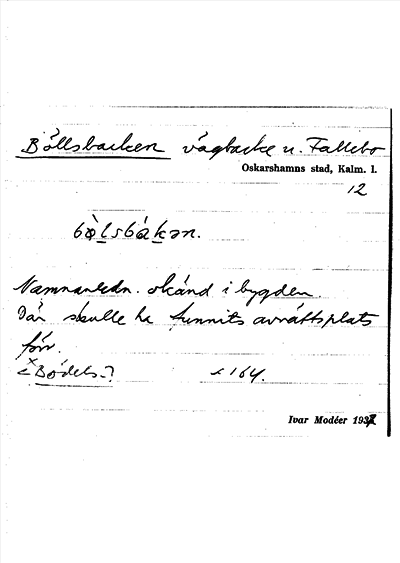 Böllsbacken vägbacke u. Fallebo
Oskarshamns stad, Kalm. l.
12
bọ̀lsbákən.
Namnanledn. okänd i bygden.
Där skulle ha funnits avrättsplats
förr.
< ˣBödels-?
s 164.
Ivar Modéer 1937